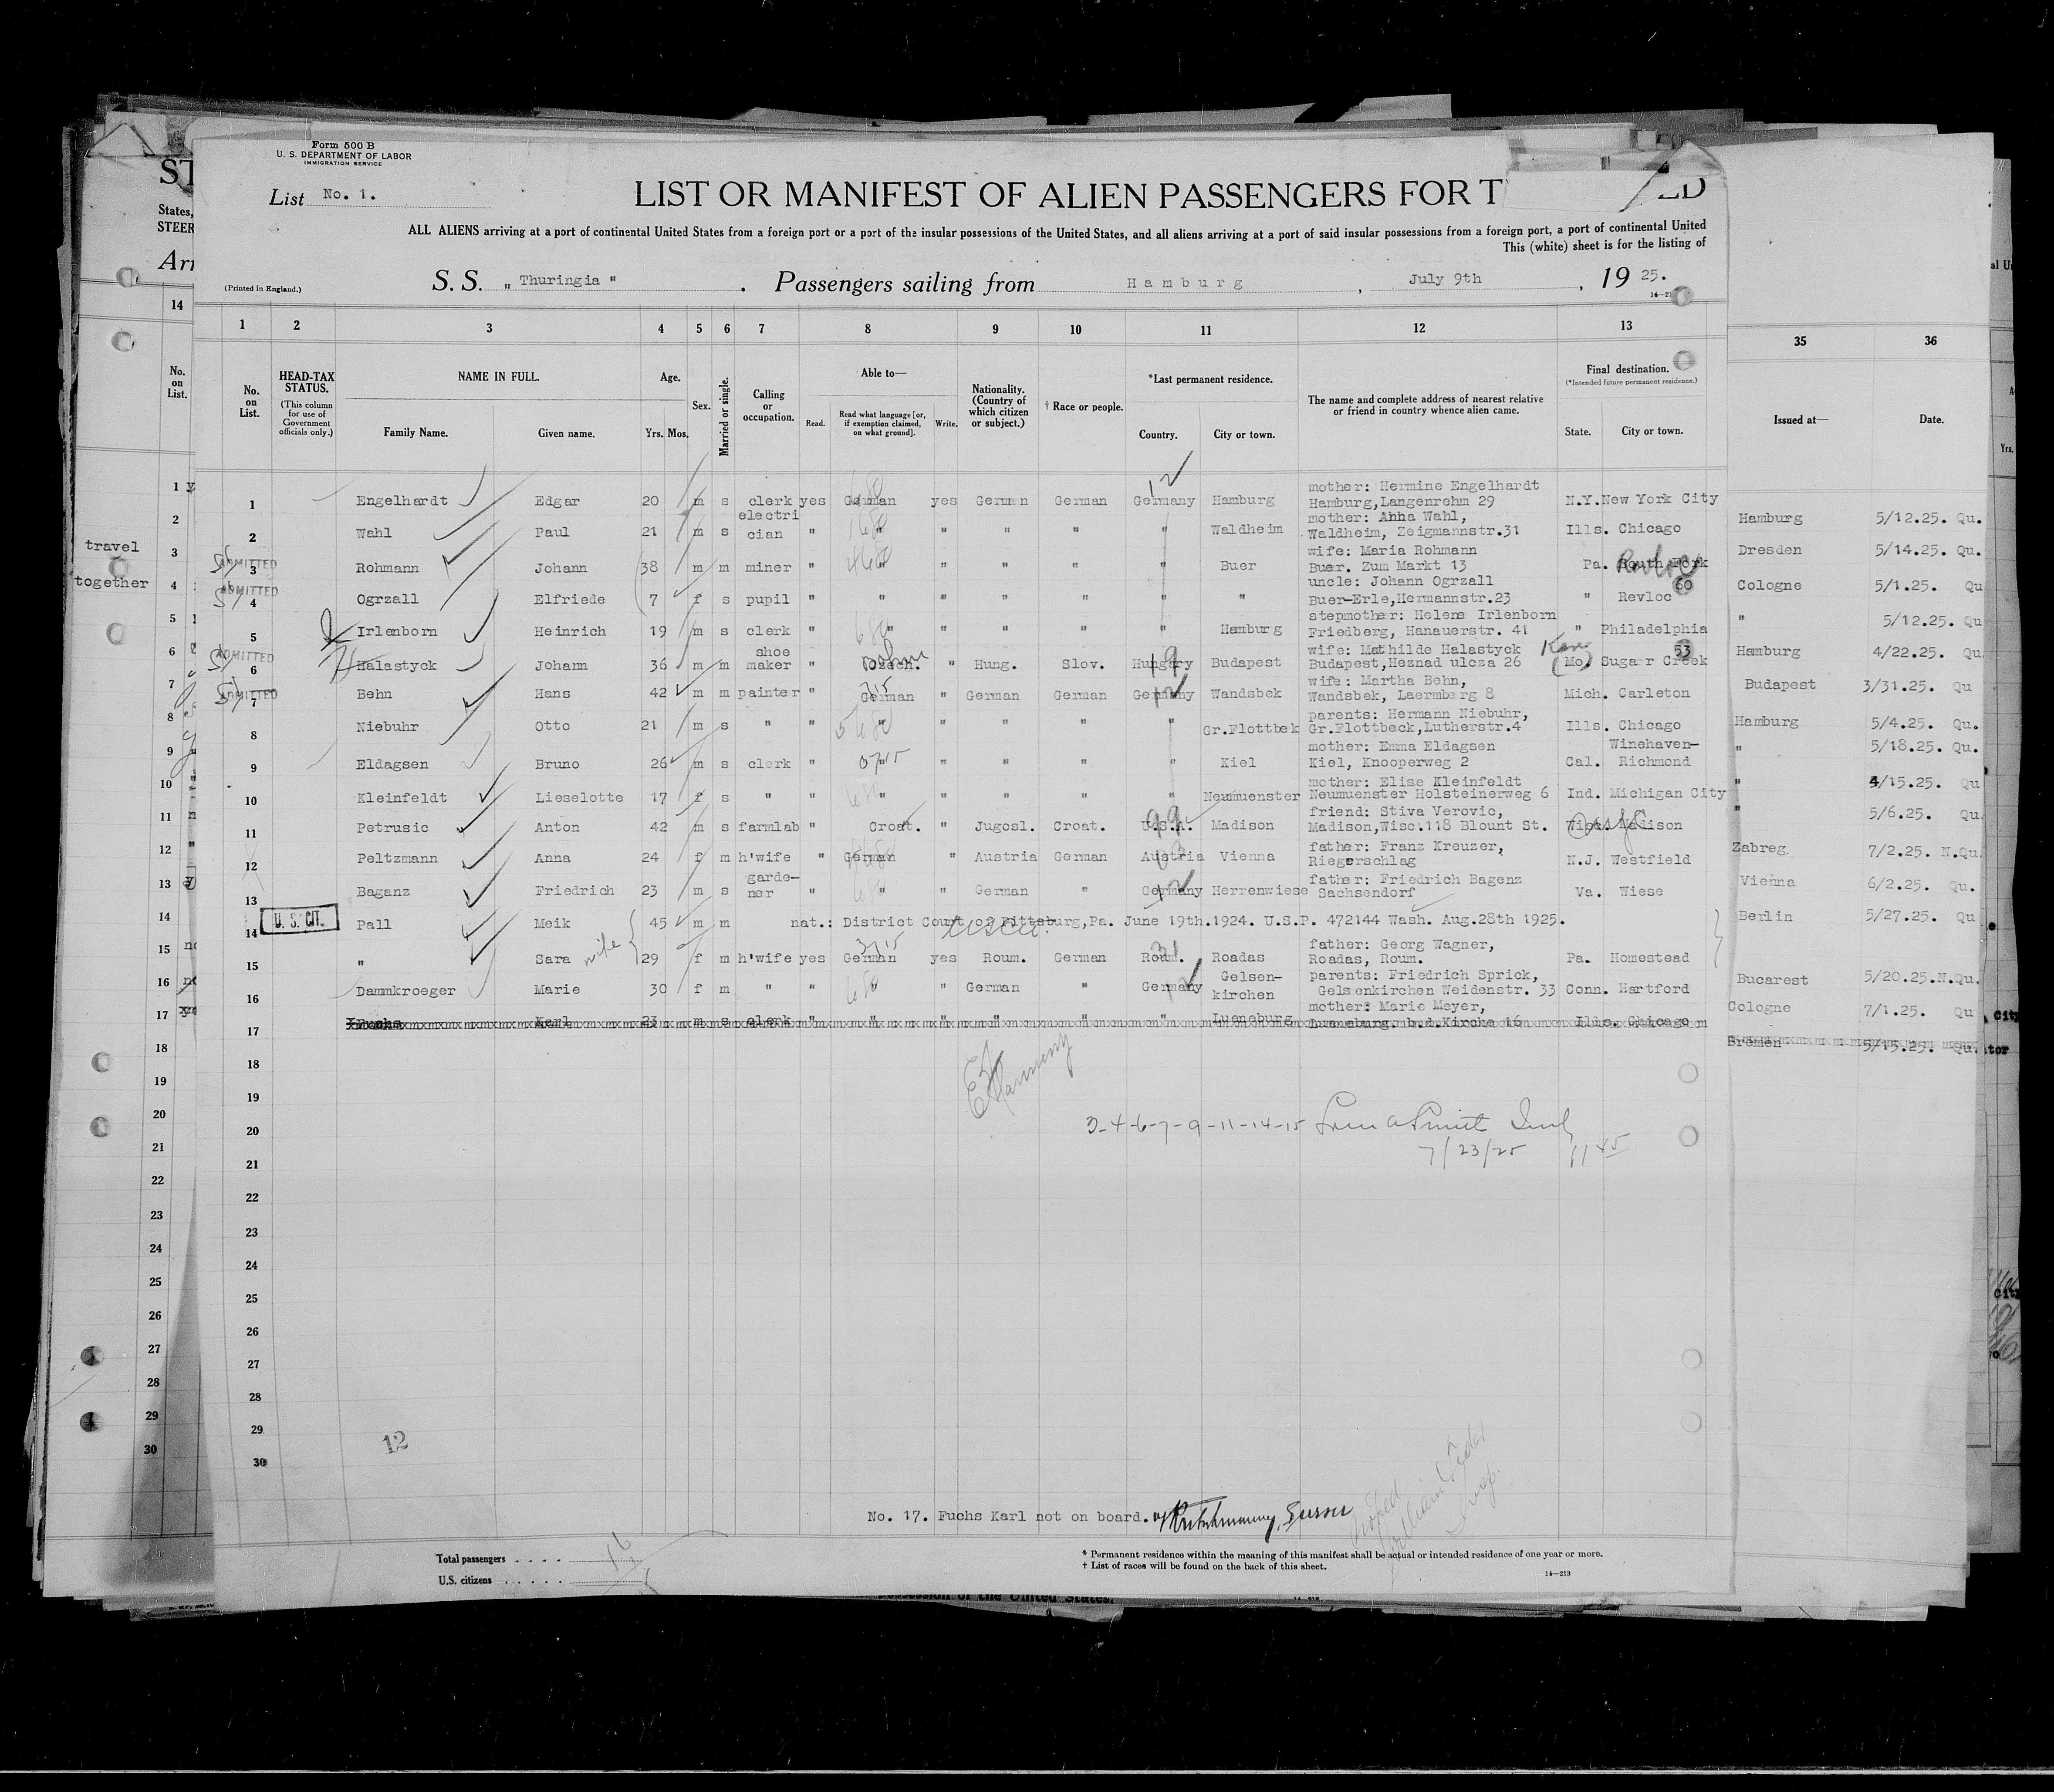 Form 500 B
U. S. DEPARTMENT OF LABOR
IMMIGRATION SERVICE
List No. 1.
LIST OR MANIFEST OF ALIEN PASSENGERS FOR T
ALL ALIENS arriving at a port of continental United States from a foreign port or a port of the insular possessions of the United States, and all aliens arriving at a port of said insular possessions from a foreign port, a port of continental United
This (white) sheet is for the listing of
(Printed in England.)
S. S. „ Thuringia " . Passengers sailing from Hamburg , July 9th , 19 25.
1 2 3 4 5 6 7 8 9 10 11 12 13 35 36
No. on List.
HEAD-TAX STATUS.
(This column for use of Government officials only.)
NAME IN FULL.
Family Name. Given name.
Age.
Yrs. Mos.
Sex.
Married or single.
Calling or occupation.
Able to—
Read. Read what language [or, if exemption claimed, on what ground]. Write.
Nationality. (Country of which citizen or subject.)
† Race or people.
*Last permanent residence.
Country. City or town.
The name and complete address of nearest relative or friend in country whence alien came.
Final destination.
(*Intended future permanent residence.)
State. City or town.
Issued at— Date.
travel together
mother: Hermine Engelhardt
1 Engelhardt Edgar 20 m s clerk yes German yes German German Germany Hamburg Hamburg,Langenrehm 29 N.Y. New York City
electri mother: Anna Wahl,
2 Wahl Paul 21 m s cian " " " " " " Waldheim Waldheim, Zeigmannstr.31 Ills. Chicago Hamburg 5/12.25. Qu.
wife: Maria Rohmann
ADMITTED 3 Rohmann Johann 38 m m miner " " " " " " Buer Buer. Zum Markt 13 Pa. South Fork Revloc Dresden 5/14.25. Qu.
uncle: Johann Ogrzall 60
ADMITTED 4 Ogrzall Elfriede 7 f s pupil " " " " " " " Buer-Erle,Hermannstr.23 " Revloc Cologne 5/1.25. Qu
stepmother: Helene Irlenborn
5 Irlenborn Heinrich 19 m s clerk " " " " " " Hamburg Friedberg, Hanauerstr. 41 " Philadelphia " 5/12.25. Qu
shoe wife: Mathilde Halastyck 53
ADMITTED 6 Halastyck Johann 36 m m maker " " Hung. Slov. Hungary Budapest Budapest,Heznad ulcza 26 Mo. Sugar Creek Hamburg 4/22.25. Qu
wife: Martha Behn,
ADMITTED 7 Behn Hans 42 m m painter " German " German German Germany Wandsbek Wandsbek, Laermberg 8 Mich. Carleton Budapest 3/31.25. Qu
parents: Hermann Niebuhr,
8 Niebuhr Otto 21 m s " " " " " " " Gr.Flottbek Gr.Flottbeck,Lutherstr.4 Ills. Chicago Hamburg 5/4.25. Qu.
mother: Emma Eldagsen Winehaven-
9 Eldagsen Bruno 26 m s clerk " " " " " " Kiel Kiel, Knooperweg 2 Cal. Richmond " 5/18.25. Qu.
mother: Elise Kleinfeldt
10 Kleinfeldt Lieselotte 17 f s " " " " " " " Neumuenster Neumuenster Holsteinerweg 6 Ind. Michigan City " 4/15.25. Qu
friend: Stiva Verovic,
11 Petrusic Anton 42 m s farmlab " Croat. " Jugosl. Croat. U.S.A. Madison Madison,Wisc.118 Blount St. Wisc. Madison " 5/6.25. Qu
father: Franz Kreuzer,
12 Peltzmann Anna 24 f m h'wife " German " Austria German Austria Vienna Riegerschlag N.J. Westfield Zabreg. 7/2.25. N.Qu.
garde- father: Friedrich Bagenz
13 Baganz Friedrich 23 m s ner " " " German " Germany Herrenwiese Sachsendorf Va. Wiese Vienna 6/2.25. Qu.
U. S. CIT. 14 Pall Meik 45 m m nat.: District Court of Pittsburg,Pa. June 19th.1924. U.S.P. 472144 Wash. Aug.28th 1925. Berlin 5/27.25. Qu
father: Georg Wagner,
15 " Sara wife 29 f m h'wife yes German yes Roum. German Roum. Roadas Roadas, Roum. Pa. Homestead
Gelsen- parents: Friedrich Sprick,
16 Dammkroeger Marie 30 f m " " " " German " Germany kirchen Gelsenkirchen Weidenstr. 33 Conn. Hartford Bucarest 5/20.25.N.Qu.
mother: Marie Meyer,
17 Fuchs Karl 23 m s clerk " " " " " " Lueneburg Lueneburg. b.d.Kirche 16 Ills. Chicago Cologne 7/1.25. Qu
Bremen 5/15.25. Qu.
18
19
20 3-4-6-7-9-11-14-15
21 7/23/25 1145
22
23
24
25
26
27
28
29
12
30
No. 17. Fuchs Karl not on board.
Total passengers . . . . 16
U.S. citizens . . . . .
* Permanent residence within the meaning of this manifest shall be actual or intended residence of one year or more.
† List of races will be found on the back of this sheet.
14—213